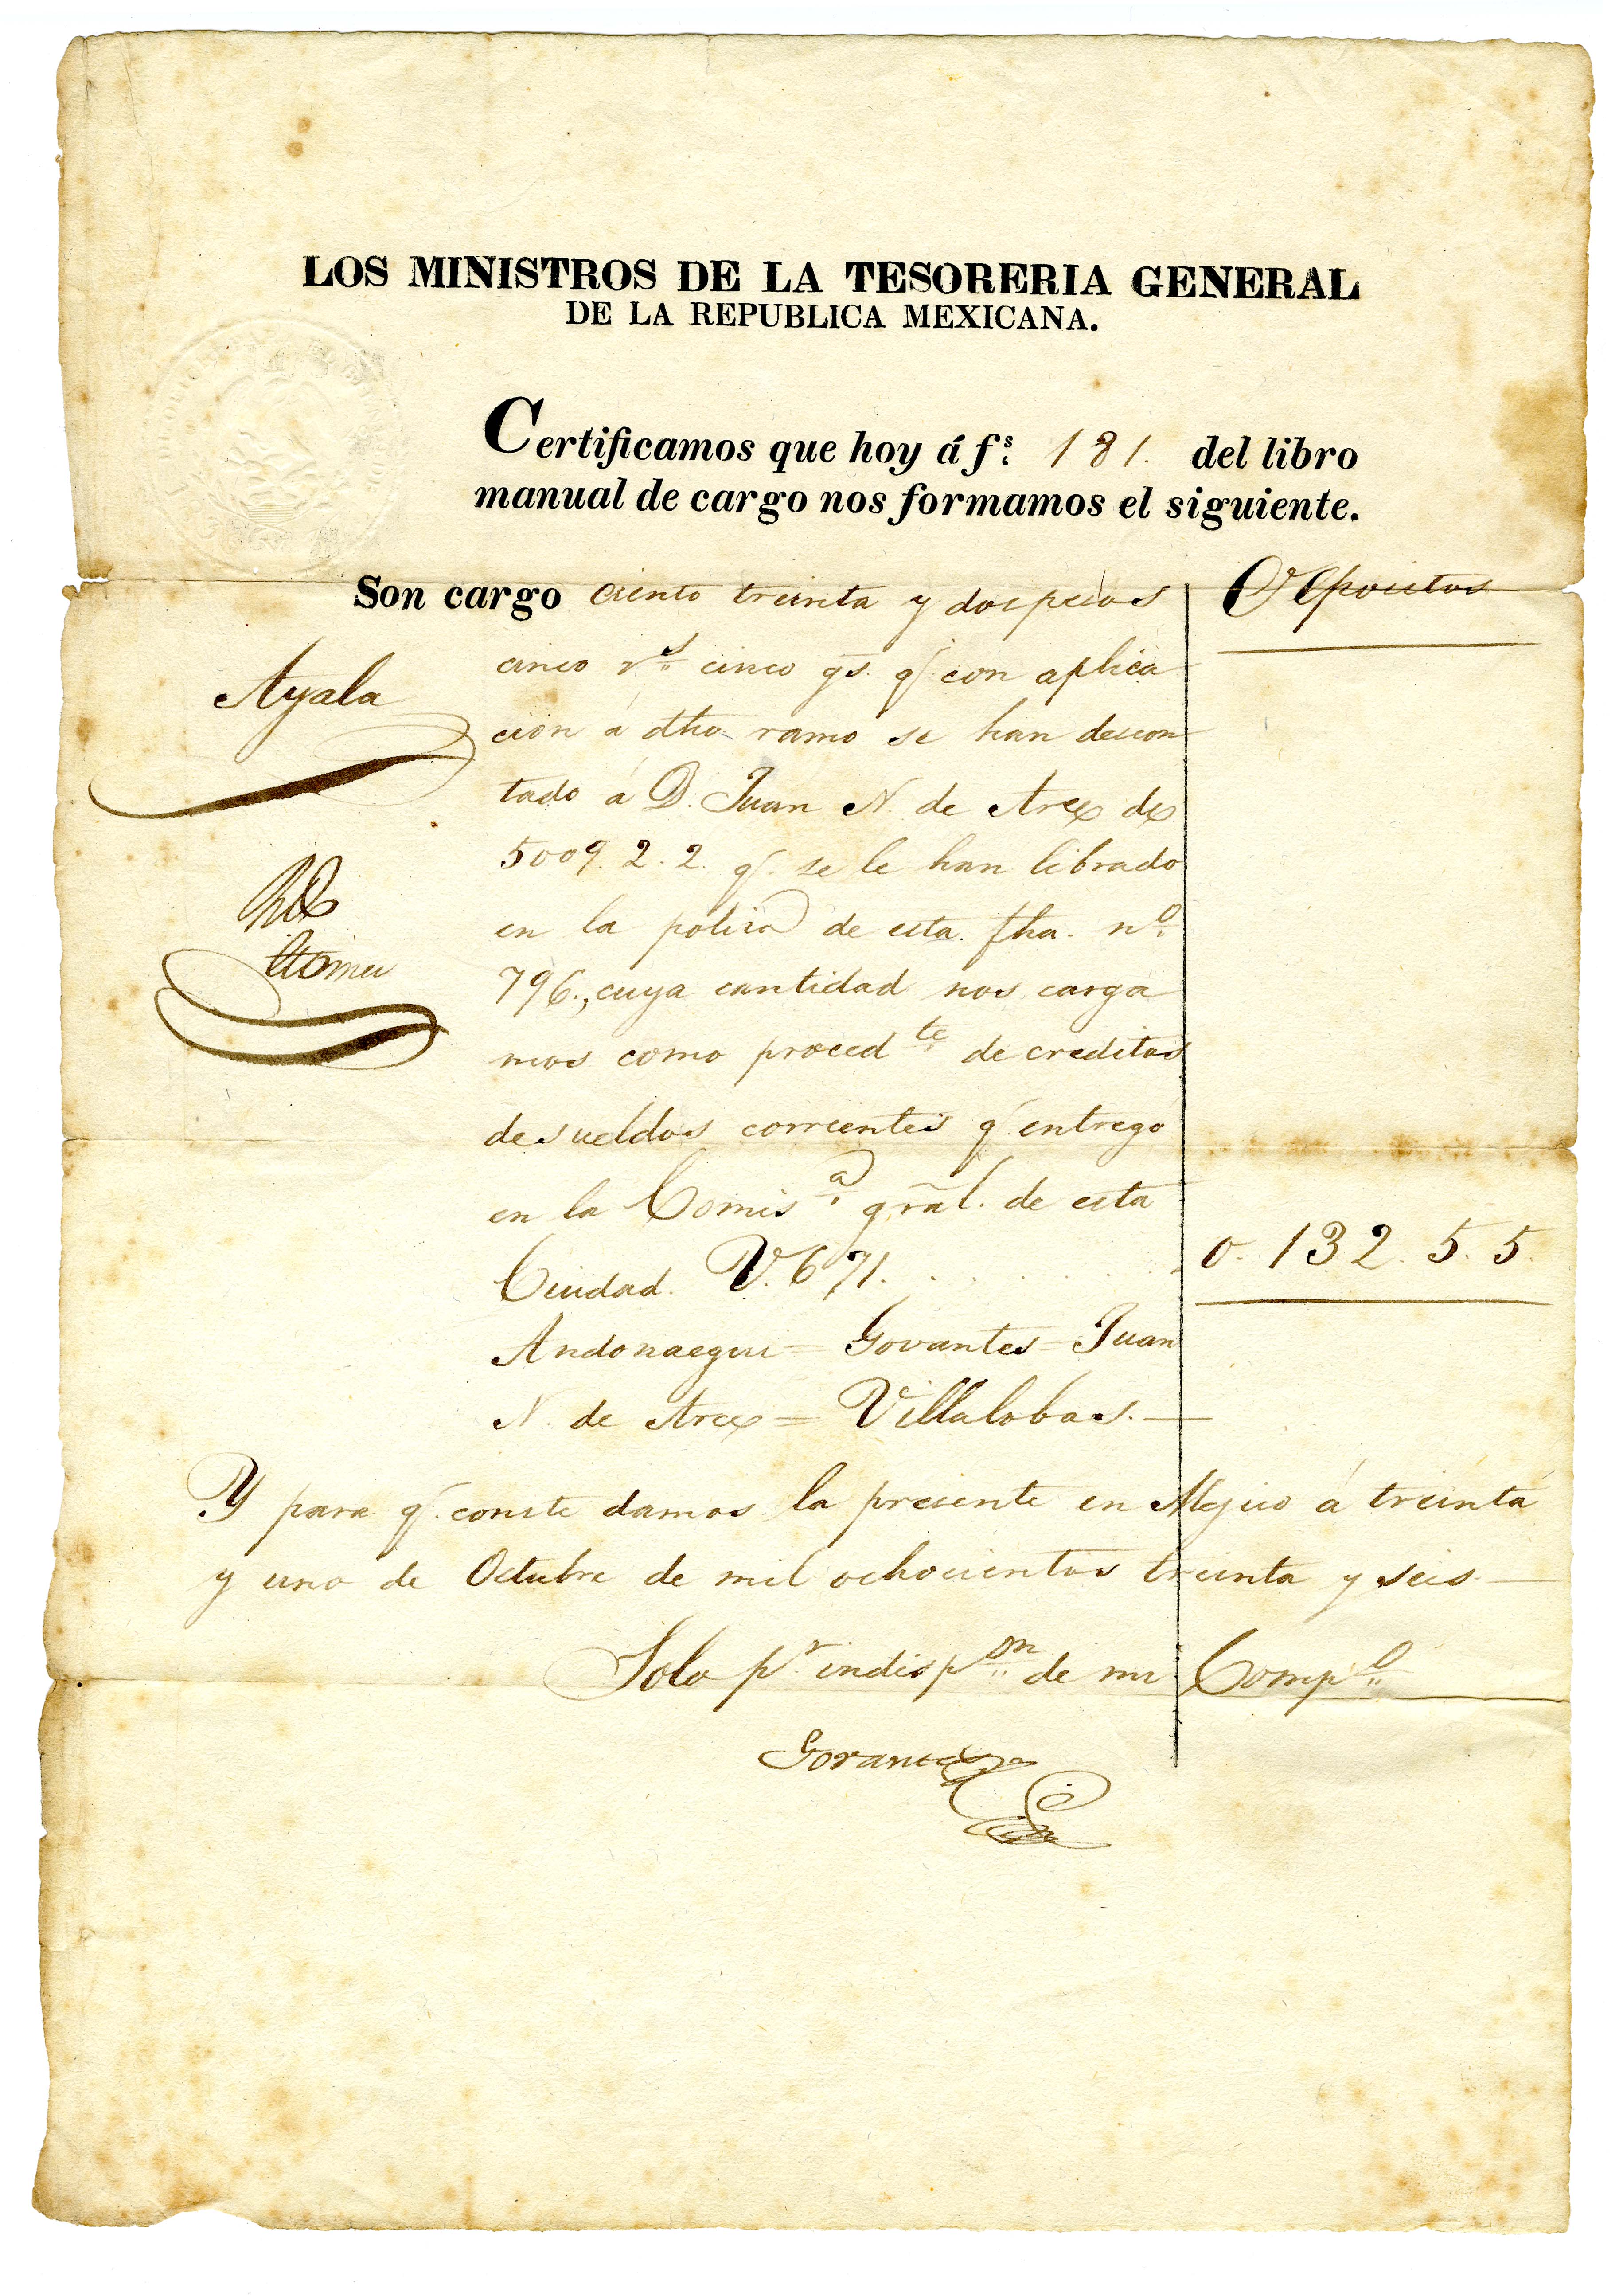 LOS MINISTROS DE LA TESORERIA GENERAL
DE LA REPUBLICA MEXICANA.
Certificamos que hoy á fs. 181. del libro
manual de cargo nos formamos el siguiente.
Depocitos
Son cargo ciento treinta y dos pesos
cinco rs. cinco gs. q. con aplica
cion á dho ramo se han descon
tado á D. Juan N. de Arce de
5009. 2. 2. q. se le han librado
en la poliza de esta fha. no.
796., cuya cantidad nos carga
mos como procedte. de creditos
de sueldos corrientes q. entregó
en la Comisa. gral. de esta
Ciudad. V. 671. . . . . . . 0. 132. 5. 5.
Andonaegui = Govantes = Juan
N. de Arce = Villalobos. —
Ayala
Y para q. conste damos la presente en Mejico á treinta
y uno de Octubre de mil ochocientos treinta y seis. —
Solo pr. indispon. de mi Compo.
Govantes